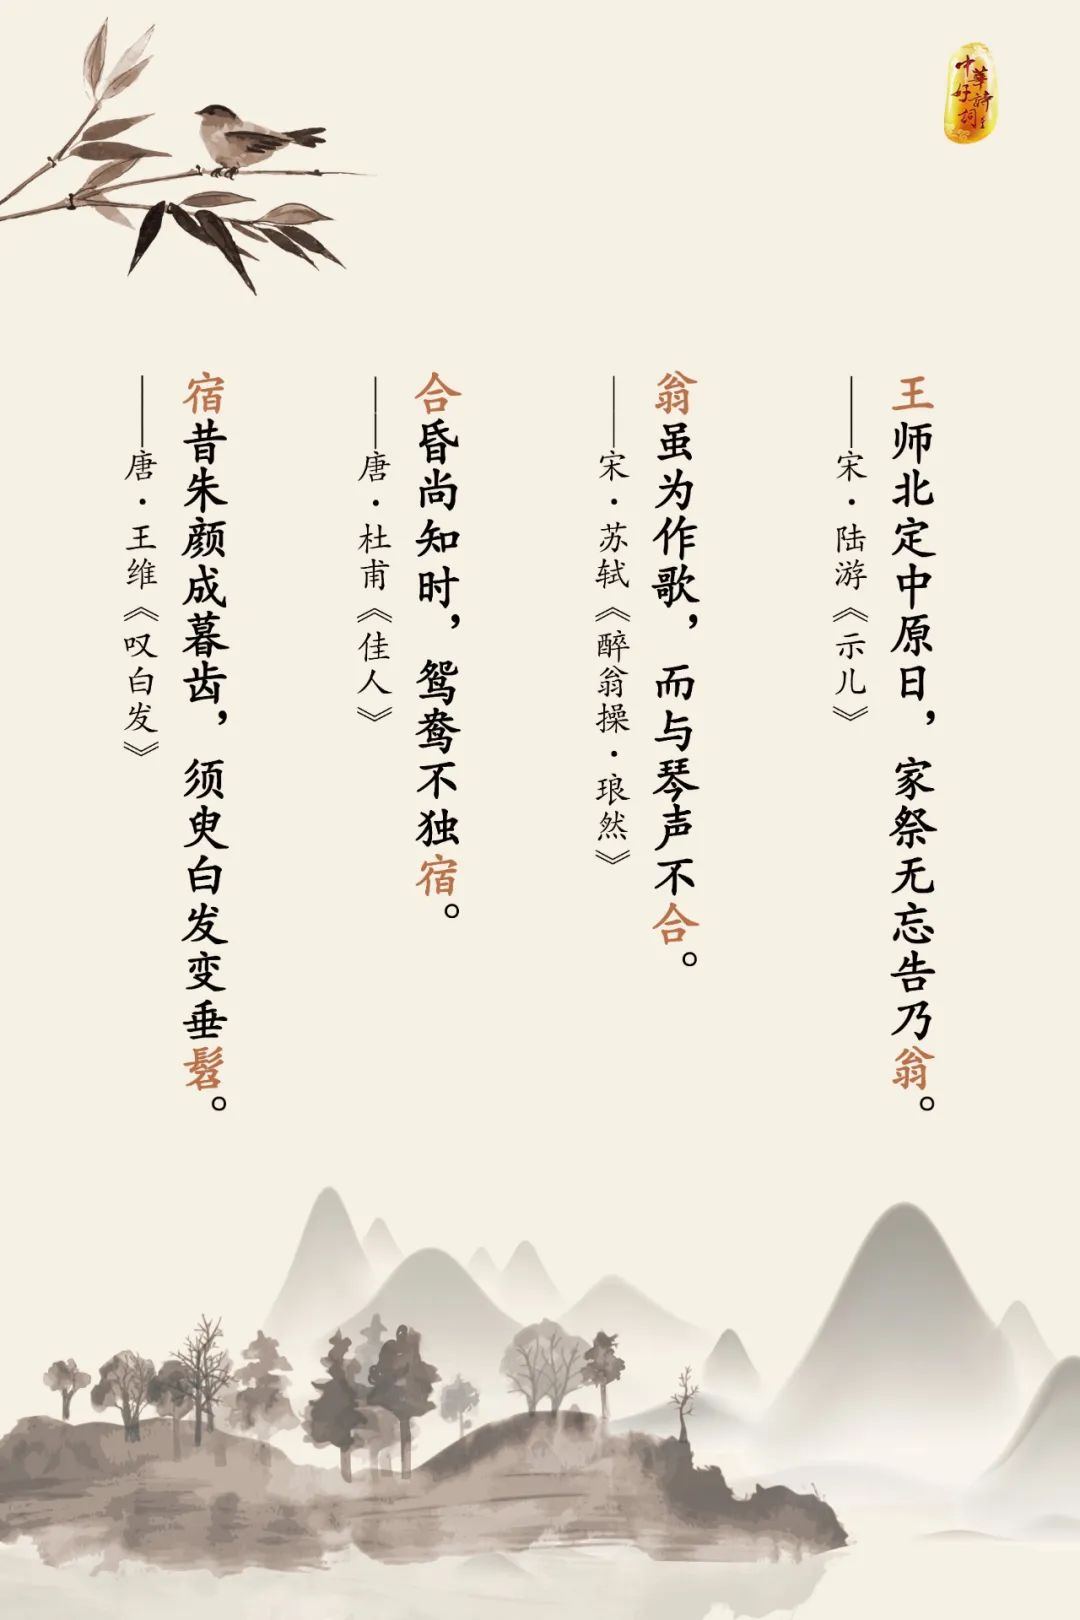 中華好詩詞
王师北定中原日，家祭无忘告乃翁。
——宋·陆游《示儿》
翁虽为作歌，而与琴声不合。
——宋·苏轼《醉翁操·琅然》
合昏尚知时，鸳鸯不独宿。
——唐·杜甫《佳人》
宿昔朱颜成暮齿，须臾白发变垂髫。
——唐·王维《叹白发》